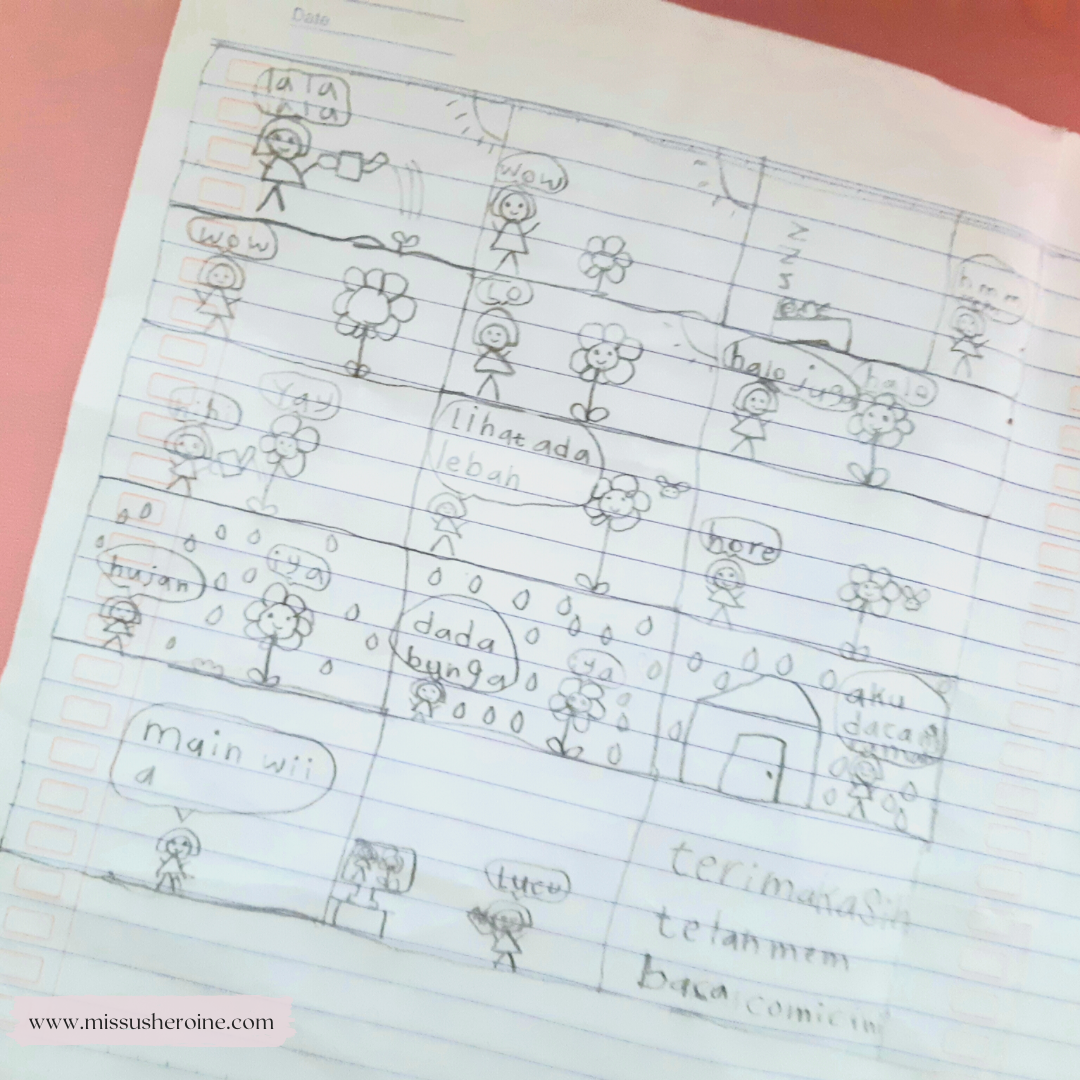 Date
la la
la la
wow
z
z
s
hmm
wow
Lo
halo jun
halo
hihi
yay
lihat ada
lebah
hore
hujan
iya
dada
bunga
iya
aku
main wii
a
Lucu
terimakasih
telah mem
baca comic in
www.missusheroine.com